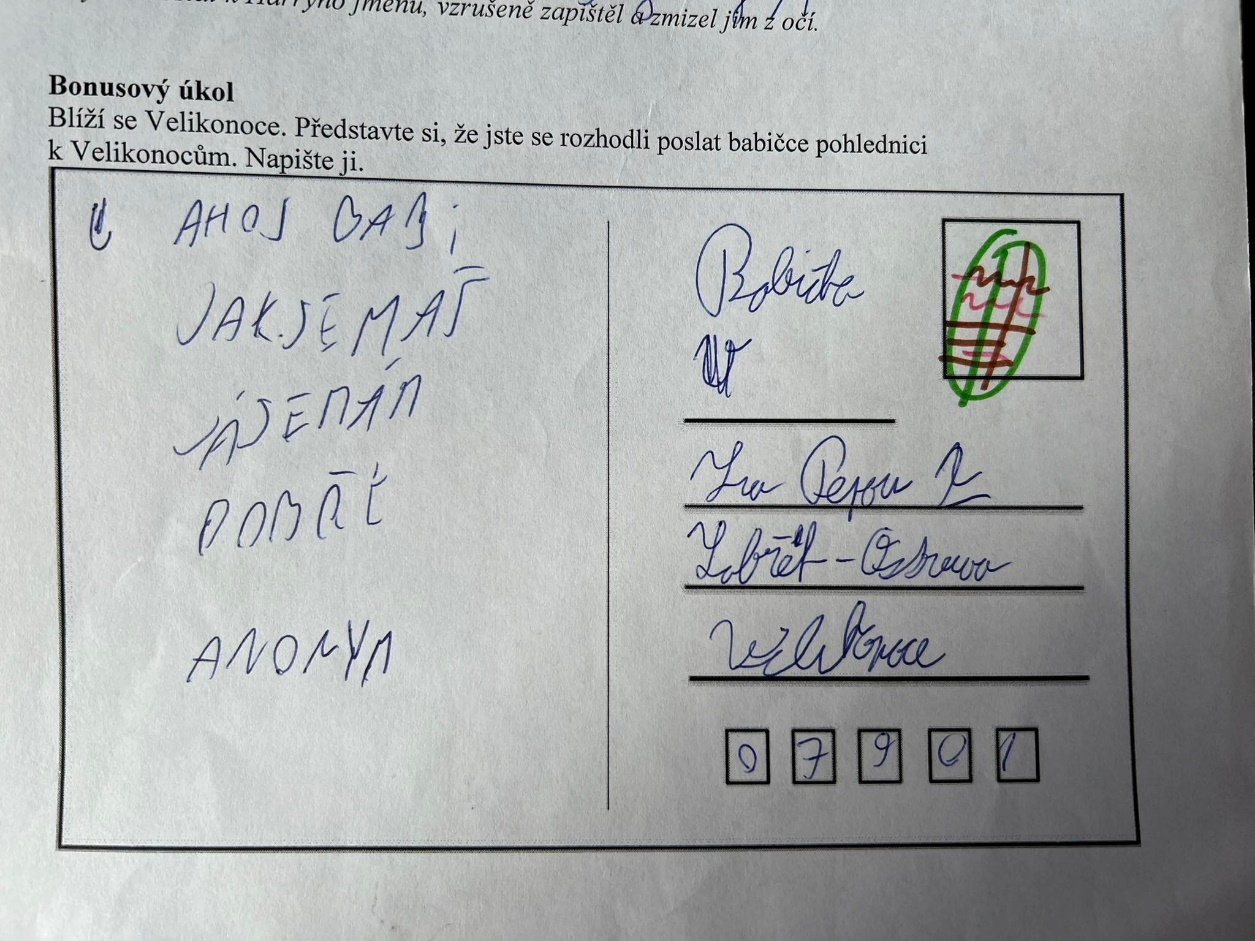 jménu, vzrušeně zapištěl a zmizel jim z očí.
Bonusový úkol
Blíží se Velikonoce. Představte si, že jste se rozhodli poslat babičce pohlednici
k Velikonocům. Napište ji.
AHOJ BABi
JAK SE MÁŠ
JÁ SE MÁM
DOBŘE
ANONYM
Babička
2
Zábřeh-Ostrava
Velikonoce
0 7 9 0 1